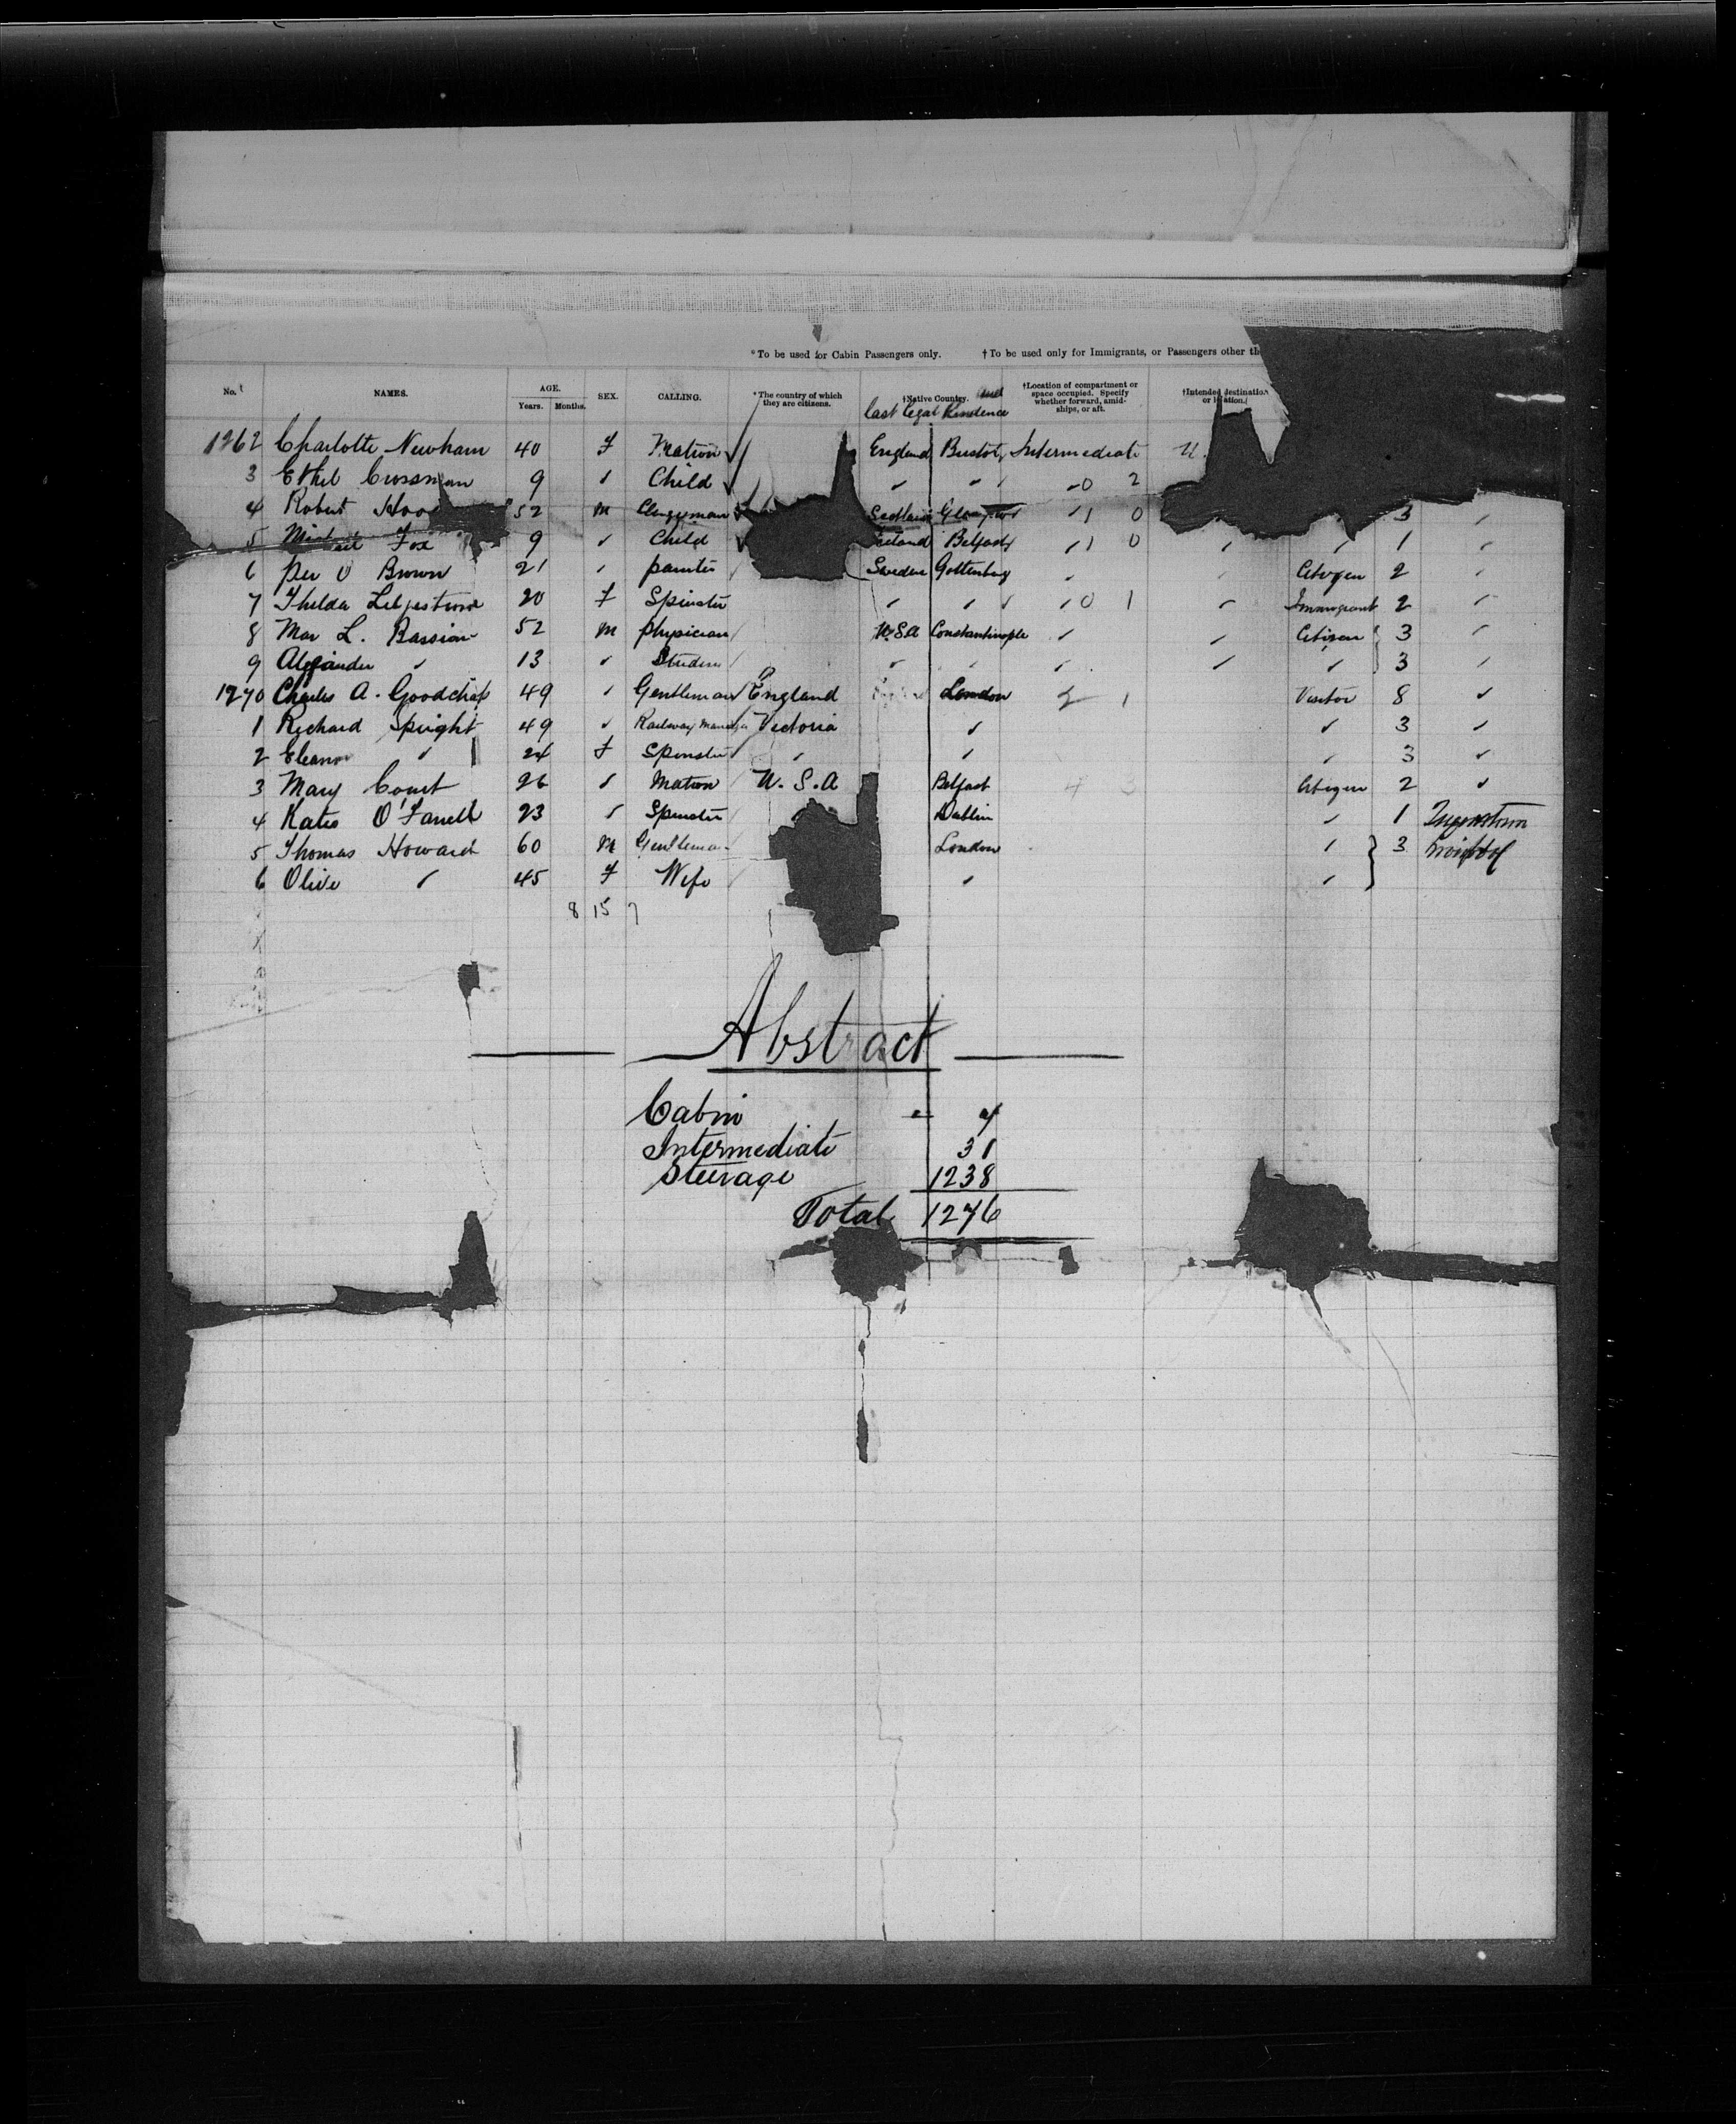 *To be used for Cabin Passengers only. †To be used only for Immigrants, or Passengers other th
No. NAMES. AGE. Years. Months. SEX. CALLING. *The country of which they are citizens. †Native Country. and last legal Residence †Location of compartment or space occupied. Specify whether forward, amidships, or aft. †Intended destination or location.
1262 Charlotte Newham 40 F Matron England Bristol Intermediate U.
3 Ethel Crossman 9 ✓ Child ✓ ✓ 0 2
4 Robert Hood 52 M Clergyman Scotland Glasgow ✓ 1 0 3 ✓
5 Fox 9 ✓ Child Ireland Belfast ✓ 1 0 ✓ ✓ 1 ✓
6 Per O Brown 21 ✓ painter Sweden Gottenburg ✓ ✓ Citizen 2 ✓
7 20 F Spinster ✓ ✓ ✓ 0 1 ✓ Immigrant 2 ✓
8 L. 52 M physician U.S.A Constantinople ✓ ✓ Citizen 3 ✓
9 Alexander ✓ 13 ✓ Student ✓ ✓ ✓ ✓ ✓ 3 ✓
1270 Charles A. Goodchap 49 ✓ Gentleman England London 2 1 Visitor 8 ✓
1 Richard Speight 49 ✓ Railway Manager Victoria ✓ ✓ 3 ✓
2 Eleanor ✓ 24 F Spinster ✓ ✓ ✓ 3 ✓
3 Mary Court 26 ✓ Matron U.S.A Belfast Citizen 2 ✓
4 Kate O'Farrell 23 ✓ Spinster Dublin ✓ 1 Queenstown
5 Thomas Howard 60 M Gentleman London ✓ 3
6 Olive ✓ 45 F Wife ✓ ✓
8 15 7
Abstract
Cabin 7
Intermediate 31
Steerage 1238
Total 1276